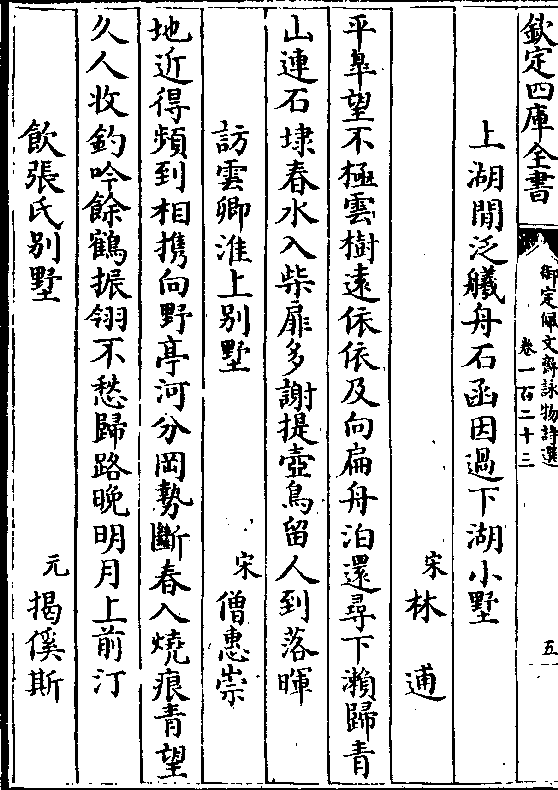 欽定四庫全書
御定佩文齋詠物詩選
卷一百二十三
五
上湖閒泛艤舟石函因過下湖小墅
宋林逋
平臯望不極雲樹遠依依及向扁舟泊還尋下瀨歸青
山連石埭春水入柴扉多謝提壺鳥留人到落暉
訪雲卿淮上别墅
宋僧惠崇
地近得頻到相攜向野亭河分岡勢斷春入燒痕青望
久人收釣吟餘鶴振翎不愁歸路晚明月上前汀
飲張氏别墅
元揭傒斯